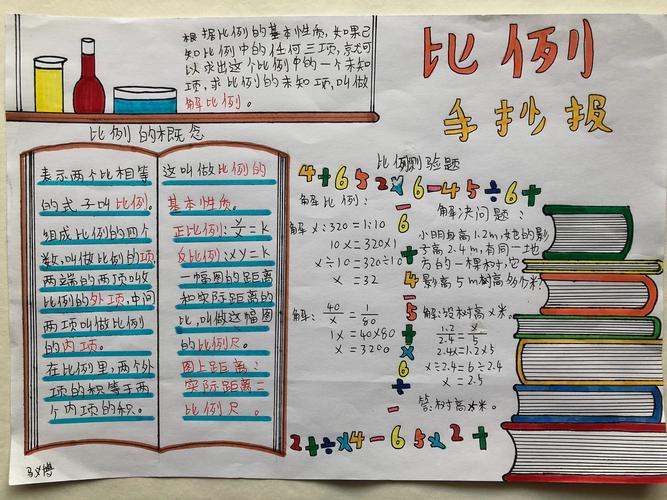 根据比例的基本性质,如果已
知比例中的任何三项,就可
以求出这个比例中的一个未知
项,求比例的未知项,叫做
解比例。
比例
手抄报
比例的概念
表示两个比相等
的式子叫比例。
组成比例的四个
数,叫做比例的项。
两端的两项叫做
比例的外项,中间
两项叫做比例
的内项。
在比例里,两个外
项的积等于两
个内项的积。
这叫做比例的
基本性质。
正比例:y/x=k
反比例:xy=k
一幅图的距离
和实际距离的
比,叫做这幅图
的比例尺。
图上距离:
实际距离=
比例尺。
比例测验题
4+652×6-45÷6+
解比例:
x:320=1:10
10x=320×1
x÷10=320÷10
x=32
解:40/x=1/80
1x=40×80
x=3200
-6+4-5+×6÷-
解决问题:
小明身高1.2m,她的影
子高2.4m,有同一地
方的一棵树,它
影高5m树高多少米?
解:设树高x米。
1.2/2.4=x/5
2.4x=1.2×5
x÷2.4=6÷2.4
x=2.5
答:树高 米。
2+÷×4-65×2+